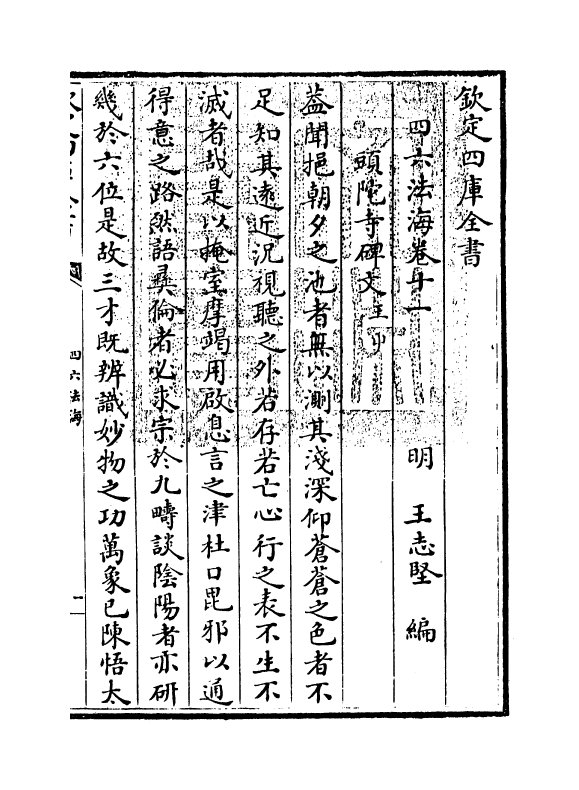 欽定四庫全書
四六法海卷十一
明 王志堅 編
頭陀寺碑文王巾
蓋聞挹朝夕之池者無以測其淺深仰蒼蒼之色者不
足知其遠近況視聽之外若存若亡心行之表不生不
滅者哉是以掩室摩竭用啟息言之津杜口毘邪以通
得意之路然語彛倫者必求宗於九疇談陰陽者亦研
幾於六位是故三才既辨識妙物之功萬象已陳悟太
四六法海
一